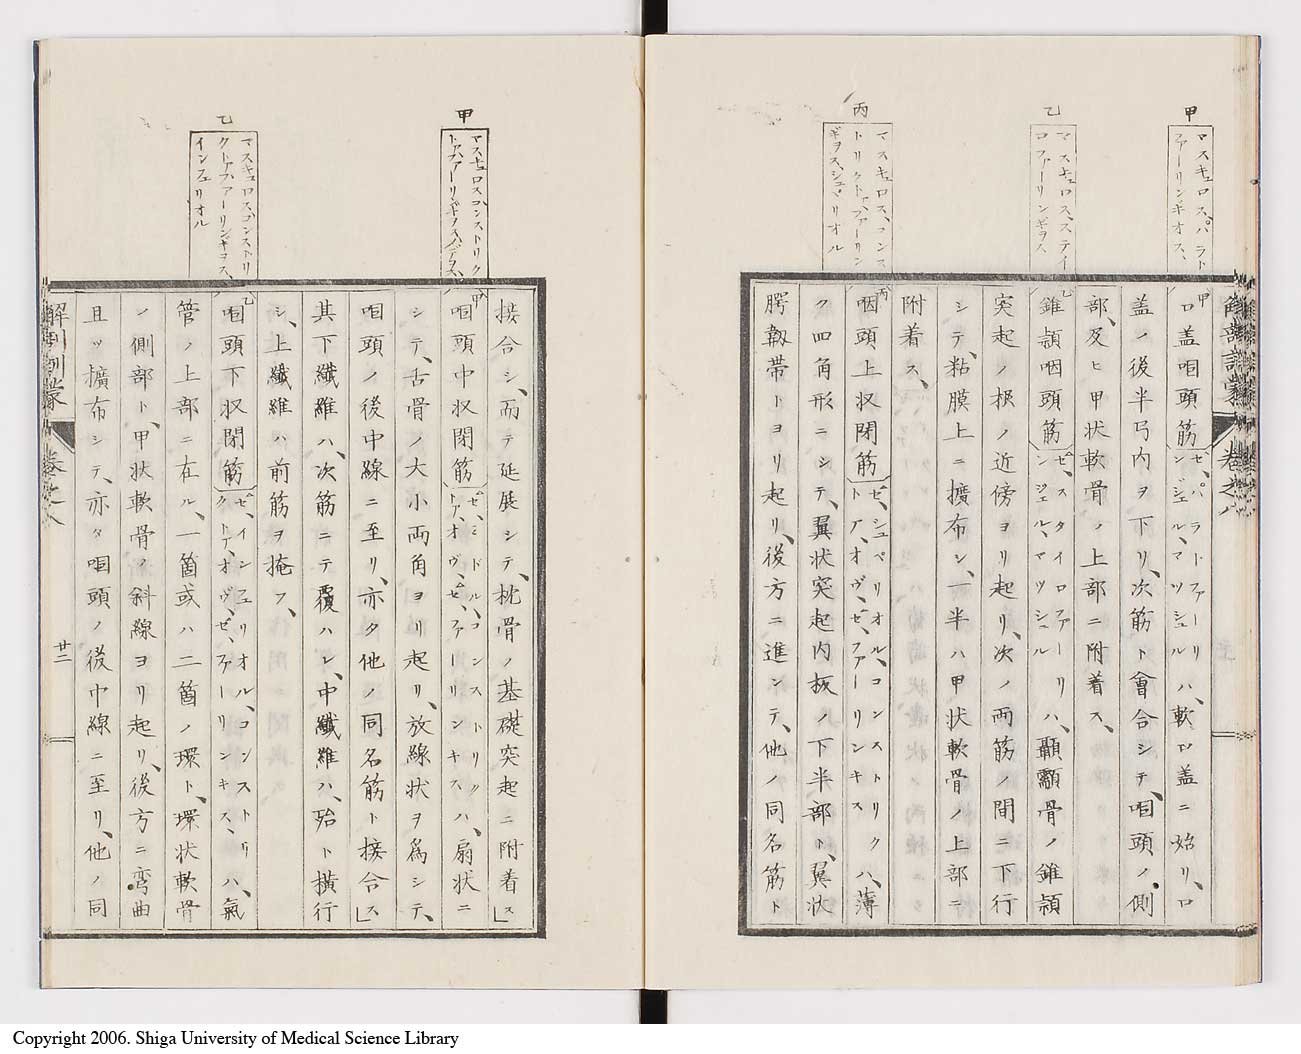 甲
マスキュロス、パラト
ファーリンギオス、
乙
マスキュロス、ステイ
ロファーリンギヲス
丙
マスキュロス、コンス
トリクトァ、ファーリン
ギヲス、シュペリオル
解剖訓蒙 巻之八
甲口盖咽頭筋ゼ、パラトファーリンジェル、マツシュルハ、軟口盖ニ始リ、口
盖ノ後半弓内ヲ下リ、次筋ト會合シテ、咽頭ノ側
部、及ヒ甲状軟骨ノ上部ニ附着ス、
乙錐頴咽頭筋ゼ、スタイロファーリンジェル、マツシュルハ、顳顬骨ノ錐頴
突起ノ根ノ近傍ヨリ起リ、次ノ両筋ノ間ニ下行
シテ、粘膜上ニ擴布シ、一半ハ甲状軟骨ノ上部ニ
附着ス、
丙咽頭上収閉筋ゼ、シュペリオル、コンストリクトア、オヴ、ゼ、ファーリンキスハ、薄
ク四角形ニシテ、翼状突起内板ノ下半部ト、翼状
腭靱帯トヨリ起リ、後方ニ進ンテ、他ノ同名筋ト
甲
マスキュロスコンストリク
トア、ファーリンギヲス、メデヲス、
乙
マスキュロス、コンストリ
クトア、ファーリンギヲス、
インフェリオル
接合シ、而テ延展シテ、枕骨ノ基礎突起ニ附着ス」
甲咽頭中収閉筋ゼ、ミドル、コンストリクトア、オヴ、ゼ、ファーリンキスハ、扇状ニ
シテ、舌骨ノ大小両角ヨリ起リ、放線状ヲ爲シテ、
咽頭ノ後中線ニ至リ、亦タ他ノ同名筋ト接合ス」
其下纖維ハ、次筋ニテ覆ハレ、中纖維ハ、殆ト横行
シ、上纖維ハ前筋ヲ掩フ、
乙咽頭下収閉筋ゼ、インフェリオル、コンストリクトア、オヴ、ゼ、ファーリンキス、ハ、氣
管ノ上部ニ在ル、一箇或ハ二箇ノ環ト、環状軟骨
ノ側部ト、甲状軟骨ノ斜線ヨリ起リ、後方ニ弯曲
且ツ擴布シテ、亦タ咽頭ノ後中線ニ至リ、他ノ同
解剖訓蒙 巻之八 廿二
Copyright 2006. Shiga University of Medical Science Library